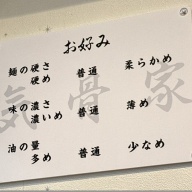 お好み
麺の硬さ 硬め 普通 柔らかめ
味の濃さ 濃いめ 普通 薄め
油の量 多め 普通 少なめ
気骨家